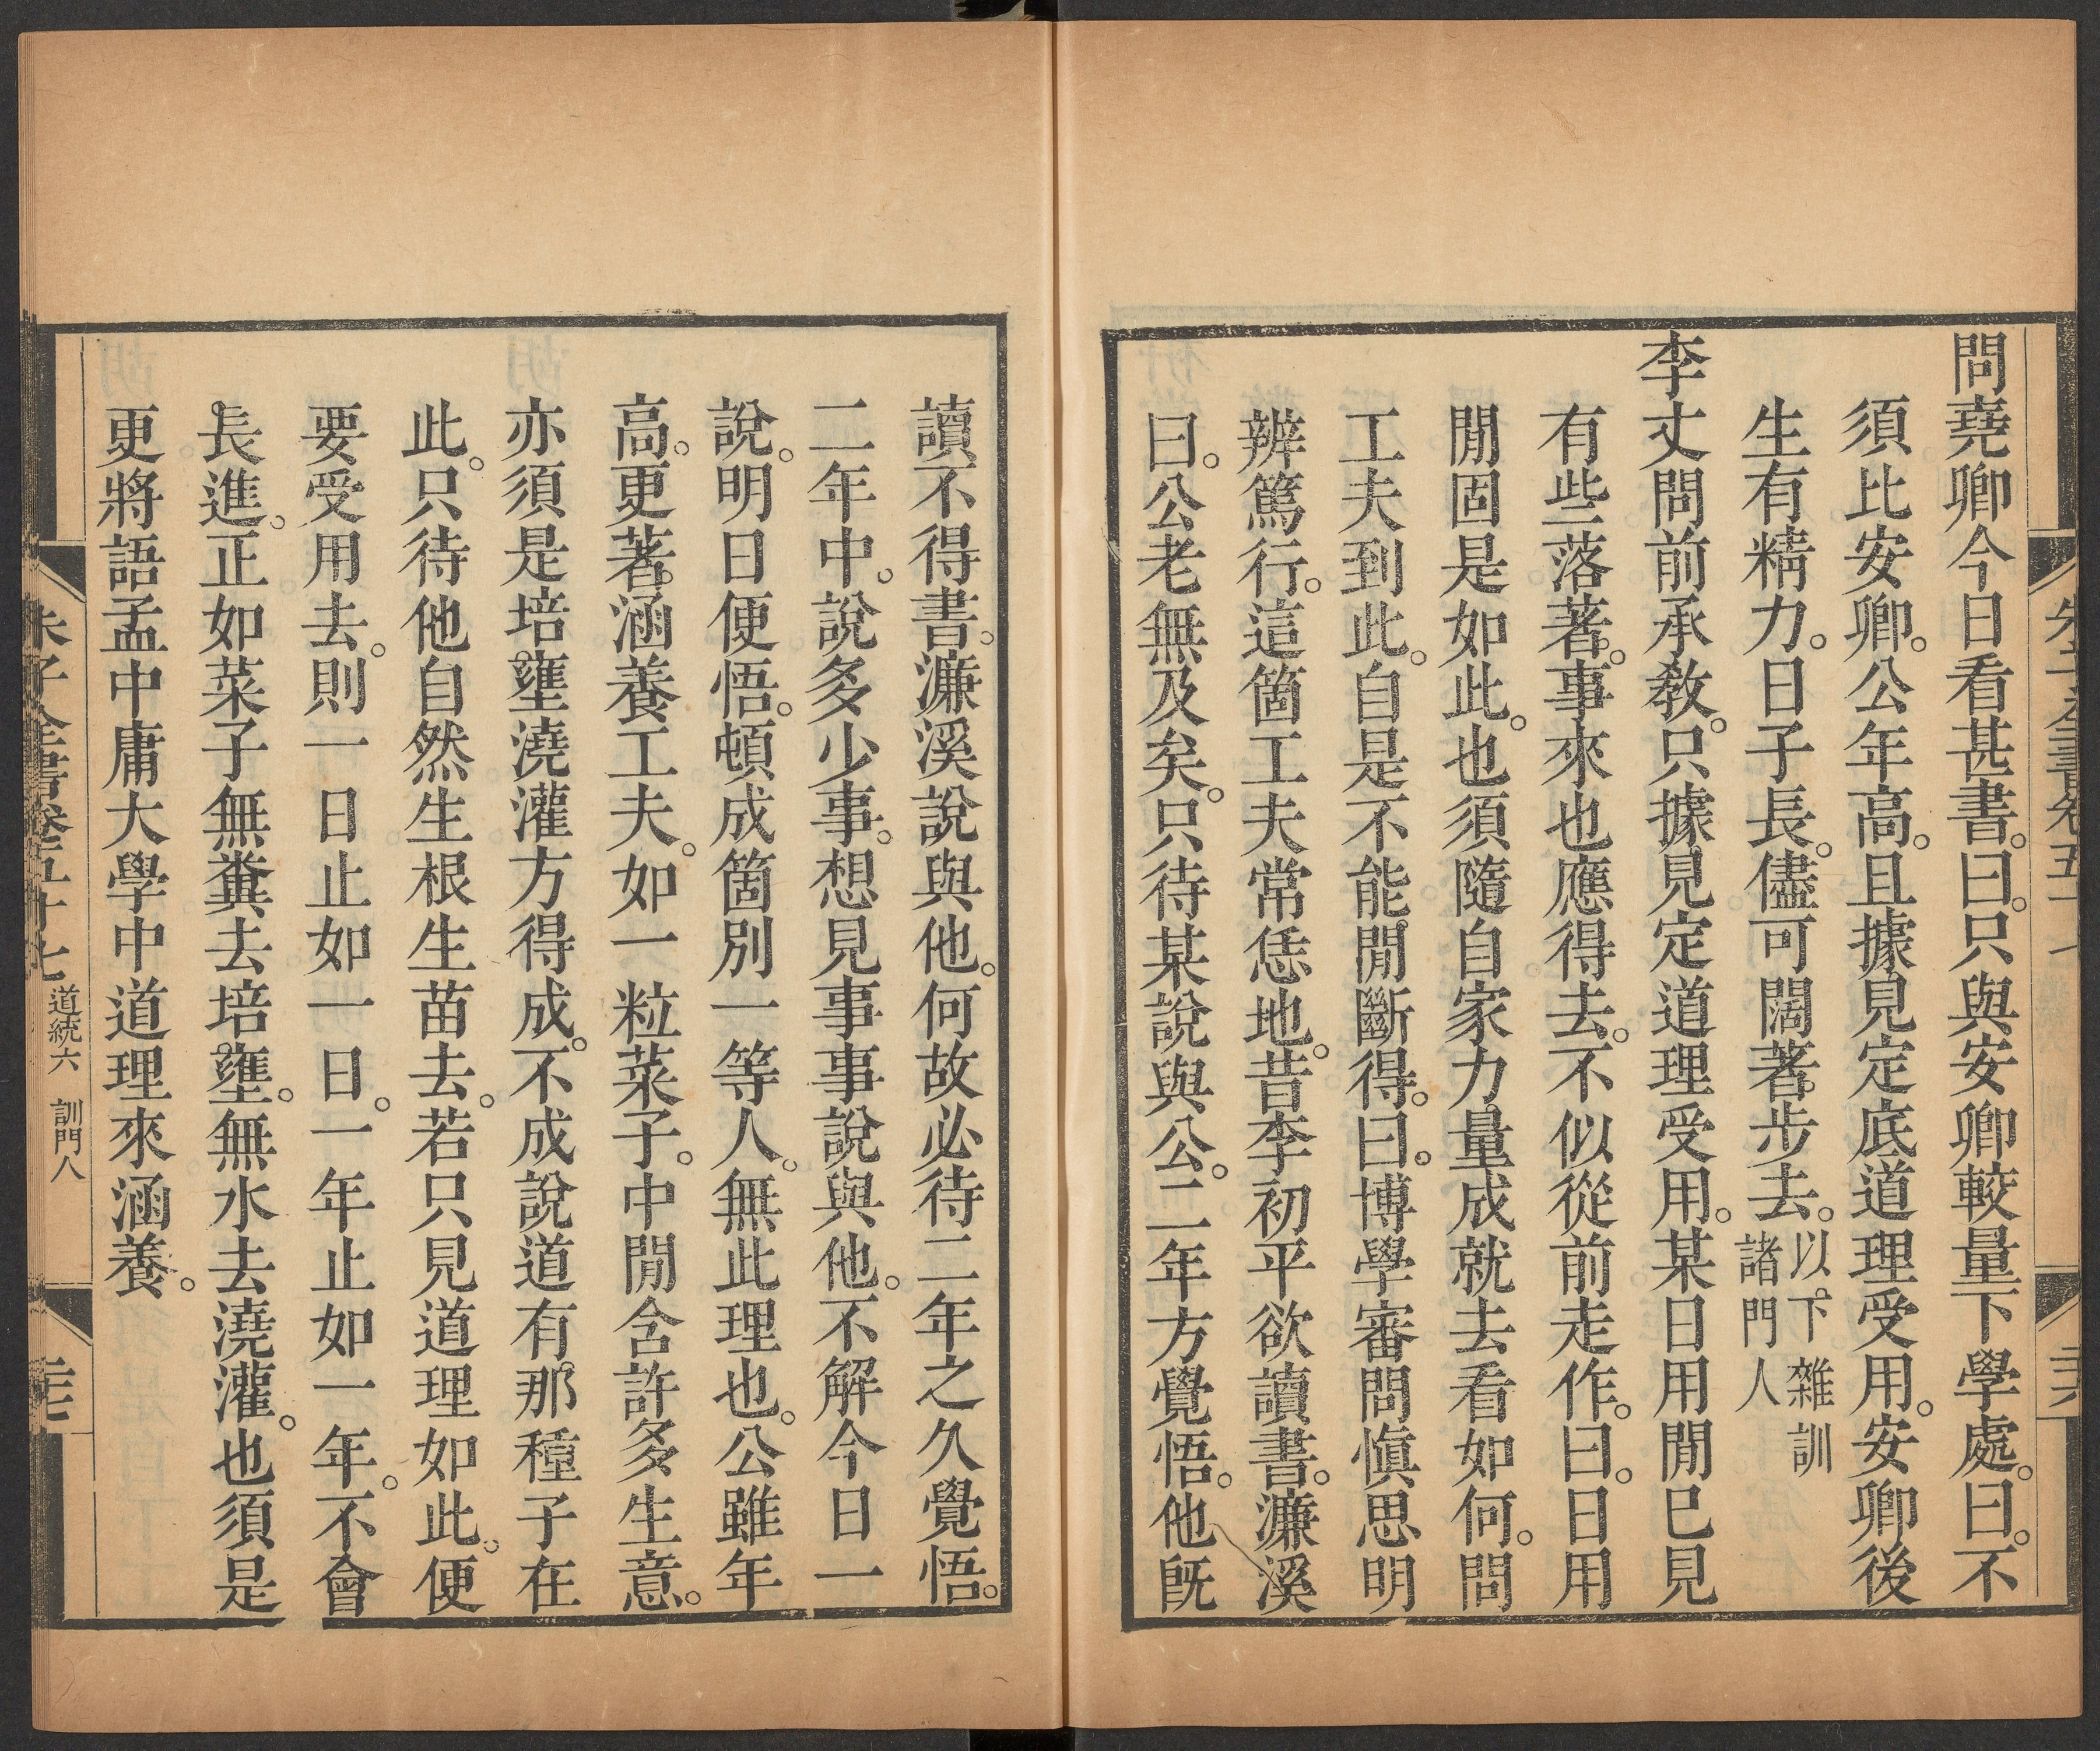 問堯卿今日看甚書。曰。只與安卿較量下學處。曰。不
須比安卿。公年高。且據見定底道理受用。安卿後
生有精力。日子長。儘可闊著步去。以下雜訓
諸門人
李丈問前承教。只據見定道理受用。某日用閒已見
有些落著。事來也應得去。不似從前走作。曰。日用
閒固是如此。也須隨自家力量成就去看如何。問
工夫到此。自是不能閒斷得。曰。博學審問愼思明
辨篤行。這箇工夫常恁地。昔李初平欲讀書。濂溪
曰。公老無及矣。只待某說與公。二年方覺悟。他旣
讀不得書。濂溪說與他。何故必待二年之久覺悟。
二年中。說多少事。想見事事說與他。不解今日一
說。明日便悟。頓成箇別一等人。無此理也。公雖年
高。更著涵養工夫。如一粒菜子。中閒含許多生意。
亦須是培壅澆灌方得成。不成說道有那種子在
此。只待他自然生根生苗去。若只見道理如此。便
要受用去。則一日止如一日。一年止如一年。不會
長進。正如菜子無糞去培壅。無水去澆灌。也須是
更將語孟中庸大學中道理來涵養。
朱子全書卷五十七 道統六 訓門人